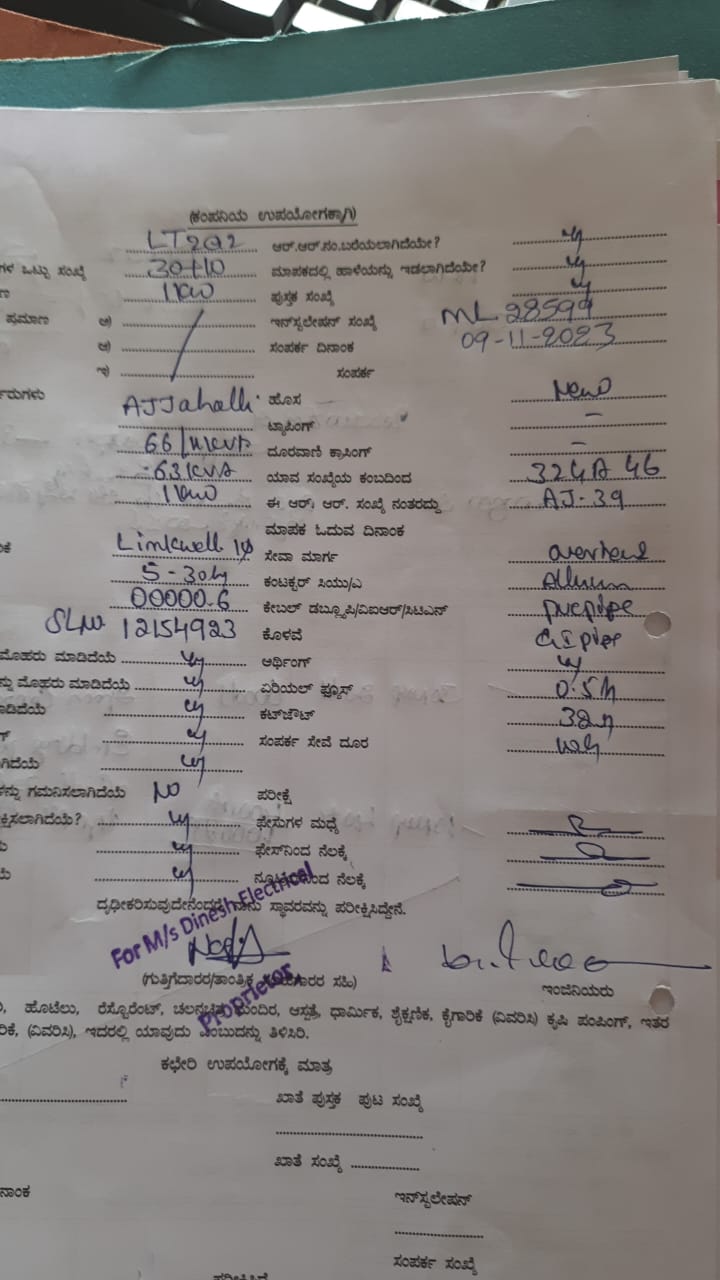 (ಕಂಪನಿಯ ಉಪಯೋಗಕ್ಕಾಗಿ)
LT2a2 ಆರ್.ಆರ್.ನಂ.ಬರೆಯಲಾಗಿದೆಯೇ? y
ಗಳ ಒಟ್ಟು ಸಂಖ್ಯೆ 30+10 ಮಾಪಕದಲ್ಲಿ ಹಾಳೆಯನ್ನು ಇಡಲಾಗಿದೆಯೇ? y
1kw ಪುಸ್ತಕ ಸಂಖ್ಯೆ y
ಪ್ರಮಾಣ ಅ) ಇನ್‌ಸ್ಟಲೇಷನ್ ಸಂಖ್ಯೆ ML 28599
ಆ) ಸಂಪರ್ಕ ದಿನಾಂಕ 09-11-2023
ಇ) ಸಂಪರ್ಕ
AJJahalli ಹೊಸ New
ಟ್ಯಾಪಿಂಗ್ –
66/11KVA ದೂರವಾಣಿ ಕ್ರಾಸಿಂಗ್ –
-63KVA ಯಾವ ಸಂಖ್ಯೆಯ ಕಂಬದಿಂದ 324A 46
1kw ಈ ಆರ್. ಆರ್. ಸಂಖ್ಯೆ ನಂತರದ್ದು AJ-39
ಮಾಪಕ ಓದುವ ದಿನಾಂಕ
Linkwell 1φ ಸೇವಾ ಮಾರ್ಗ overhead
5-30A ಕಂಟಕ್ಟರ್ ಸಿಯು/ಎ
00000.6 ಕೇಬಲ್ ಡಬ್ಲ್ಯೂಪಿ/ವಿಐಆರ್/ಸಿಟಿಎನ್ pvc pipe
SLNo 12154923 ಕೊಳವೆ GI pipe
ಮೊಹರು ಮಾಡಿದೆಯೆ y ಆರ್ಥಿಂಗ್ y
ನ್ನು ಮೊಹರು ಮಾಡಿದೆಯೆ y ಏರಿಯಲ್ ಫ್ಯೂಸ್
ಾಡಿದೆಯೆ y ಕಟ್‌ಔಟ್ 32A
y ಸಂಪರ್ಕ ಸೇವೆ ದೂರ
ಗಿದೆಯೆ y
ಗಮನಿಸಲಾಗಿದೆಯೆ NO ಪರೀಕ್ಷೆ
ಕ್ಷಿಸಲಾಗಿದೆಯೆ? y ಫೇಸುಗಳ ಮಧ್ಯೆ
y ಫೇಸ್‌ನಿಂದ ನೆಲಕ್ಕೆ
y ನೆಲಕ್ಕೆ
ದೃಢೀಕರಿಸುವುದೇನೆಂದರೆ ನಾನು ಸ್ಥಾವರವನ್ನು ಪರೀಕ್ಷಿಸಿದ್ದೇನೆ.
For M/s Dinesh Electrical
Proprietor
(ಗುತ್ತಿಗೆದಾರರ/ತಾಂತ್ರಿಕ ಸಹಿ)
ಇಂಜಿನಿಯರು
ಹೊಟೆಲು, ರೆಸ್ಟೊರೆಂಟ್, ಚಲನಚಿತ್ರ ಮಂದಿರ, ಆಸ್ಪತ್ರೆ, ಧಾರ್ಮಿಕ, ಶೈಕ್ಷಣಿಕ, ಕೈಗಾರಿಕೆ (ವಿವರಿಸಿ) ಕೃಷಿ ಪಂಪಿಂಗ್, ಇತರ
ರಿಕೆ, (ವಿವರಿಸಿ), ಇದರಲ್ಲಿ ಯಾವುದು ಎಂಬುದನ್ನು ತಿಳಿಸಿರಿ.
ಕಛೇರಿ ಉಪಯೋಗಕ್ಕೆ ಮಾತ್ರ
ಖಾತೆ ಪುಸ್ತಕ ಪುಟ ಸಂಖ್ಯೆ
ಖಾತೆ ಸಂಖ್ಯೆ
ನಾಂಕ ಇನ್‌ಸ್ಟಲೇಷನ್
ಸಂಪರ್ಕ ಸಂಖ್ಯೆ